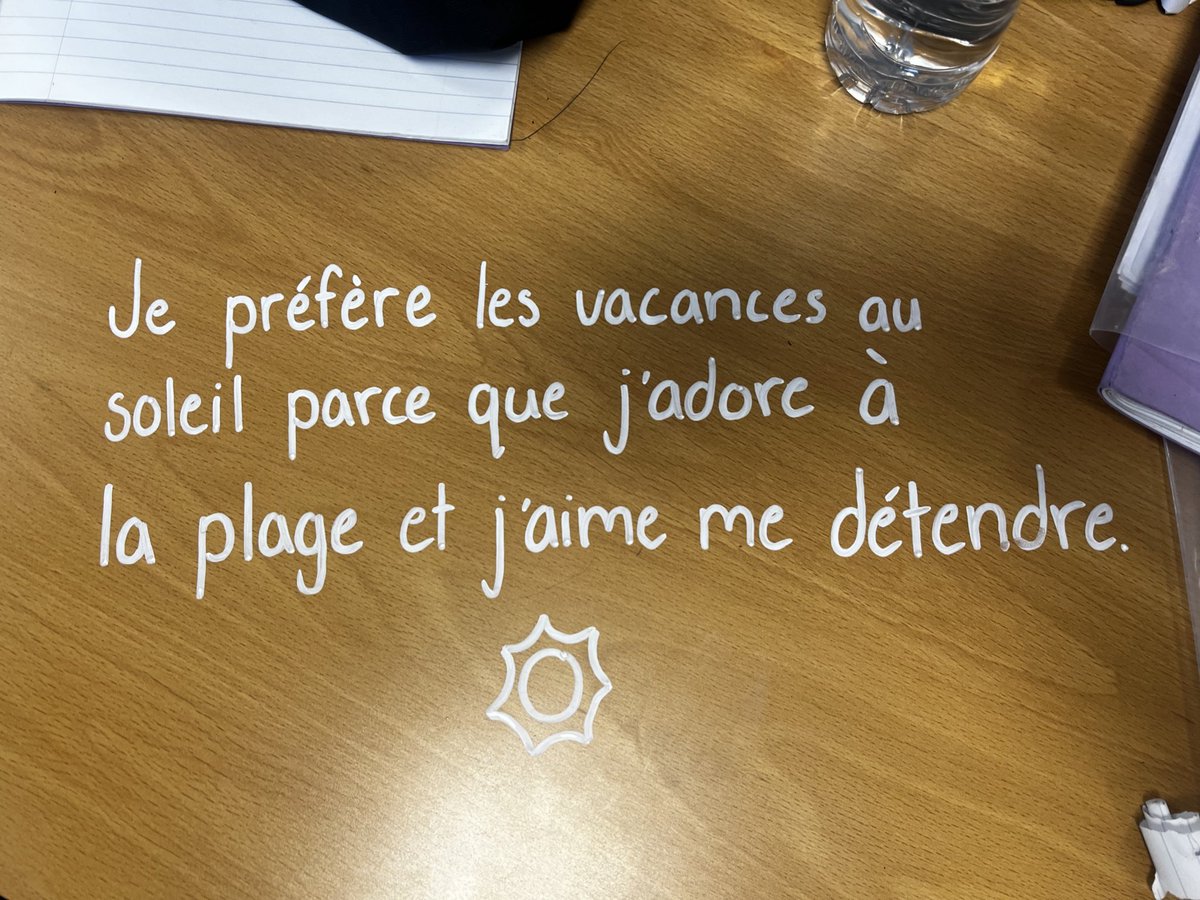 Je préfère les vacances au
soleil parce que j'adore à
la plage et j'aime me détendre.